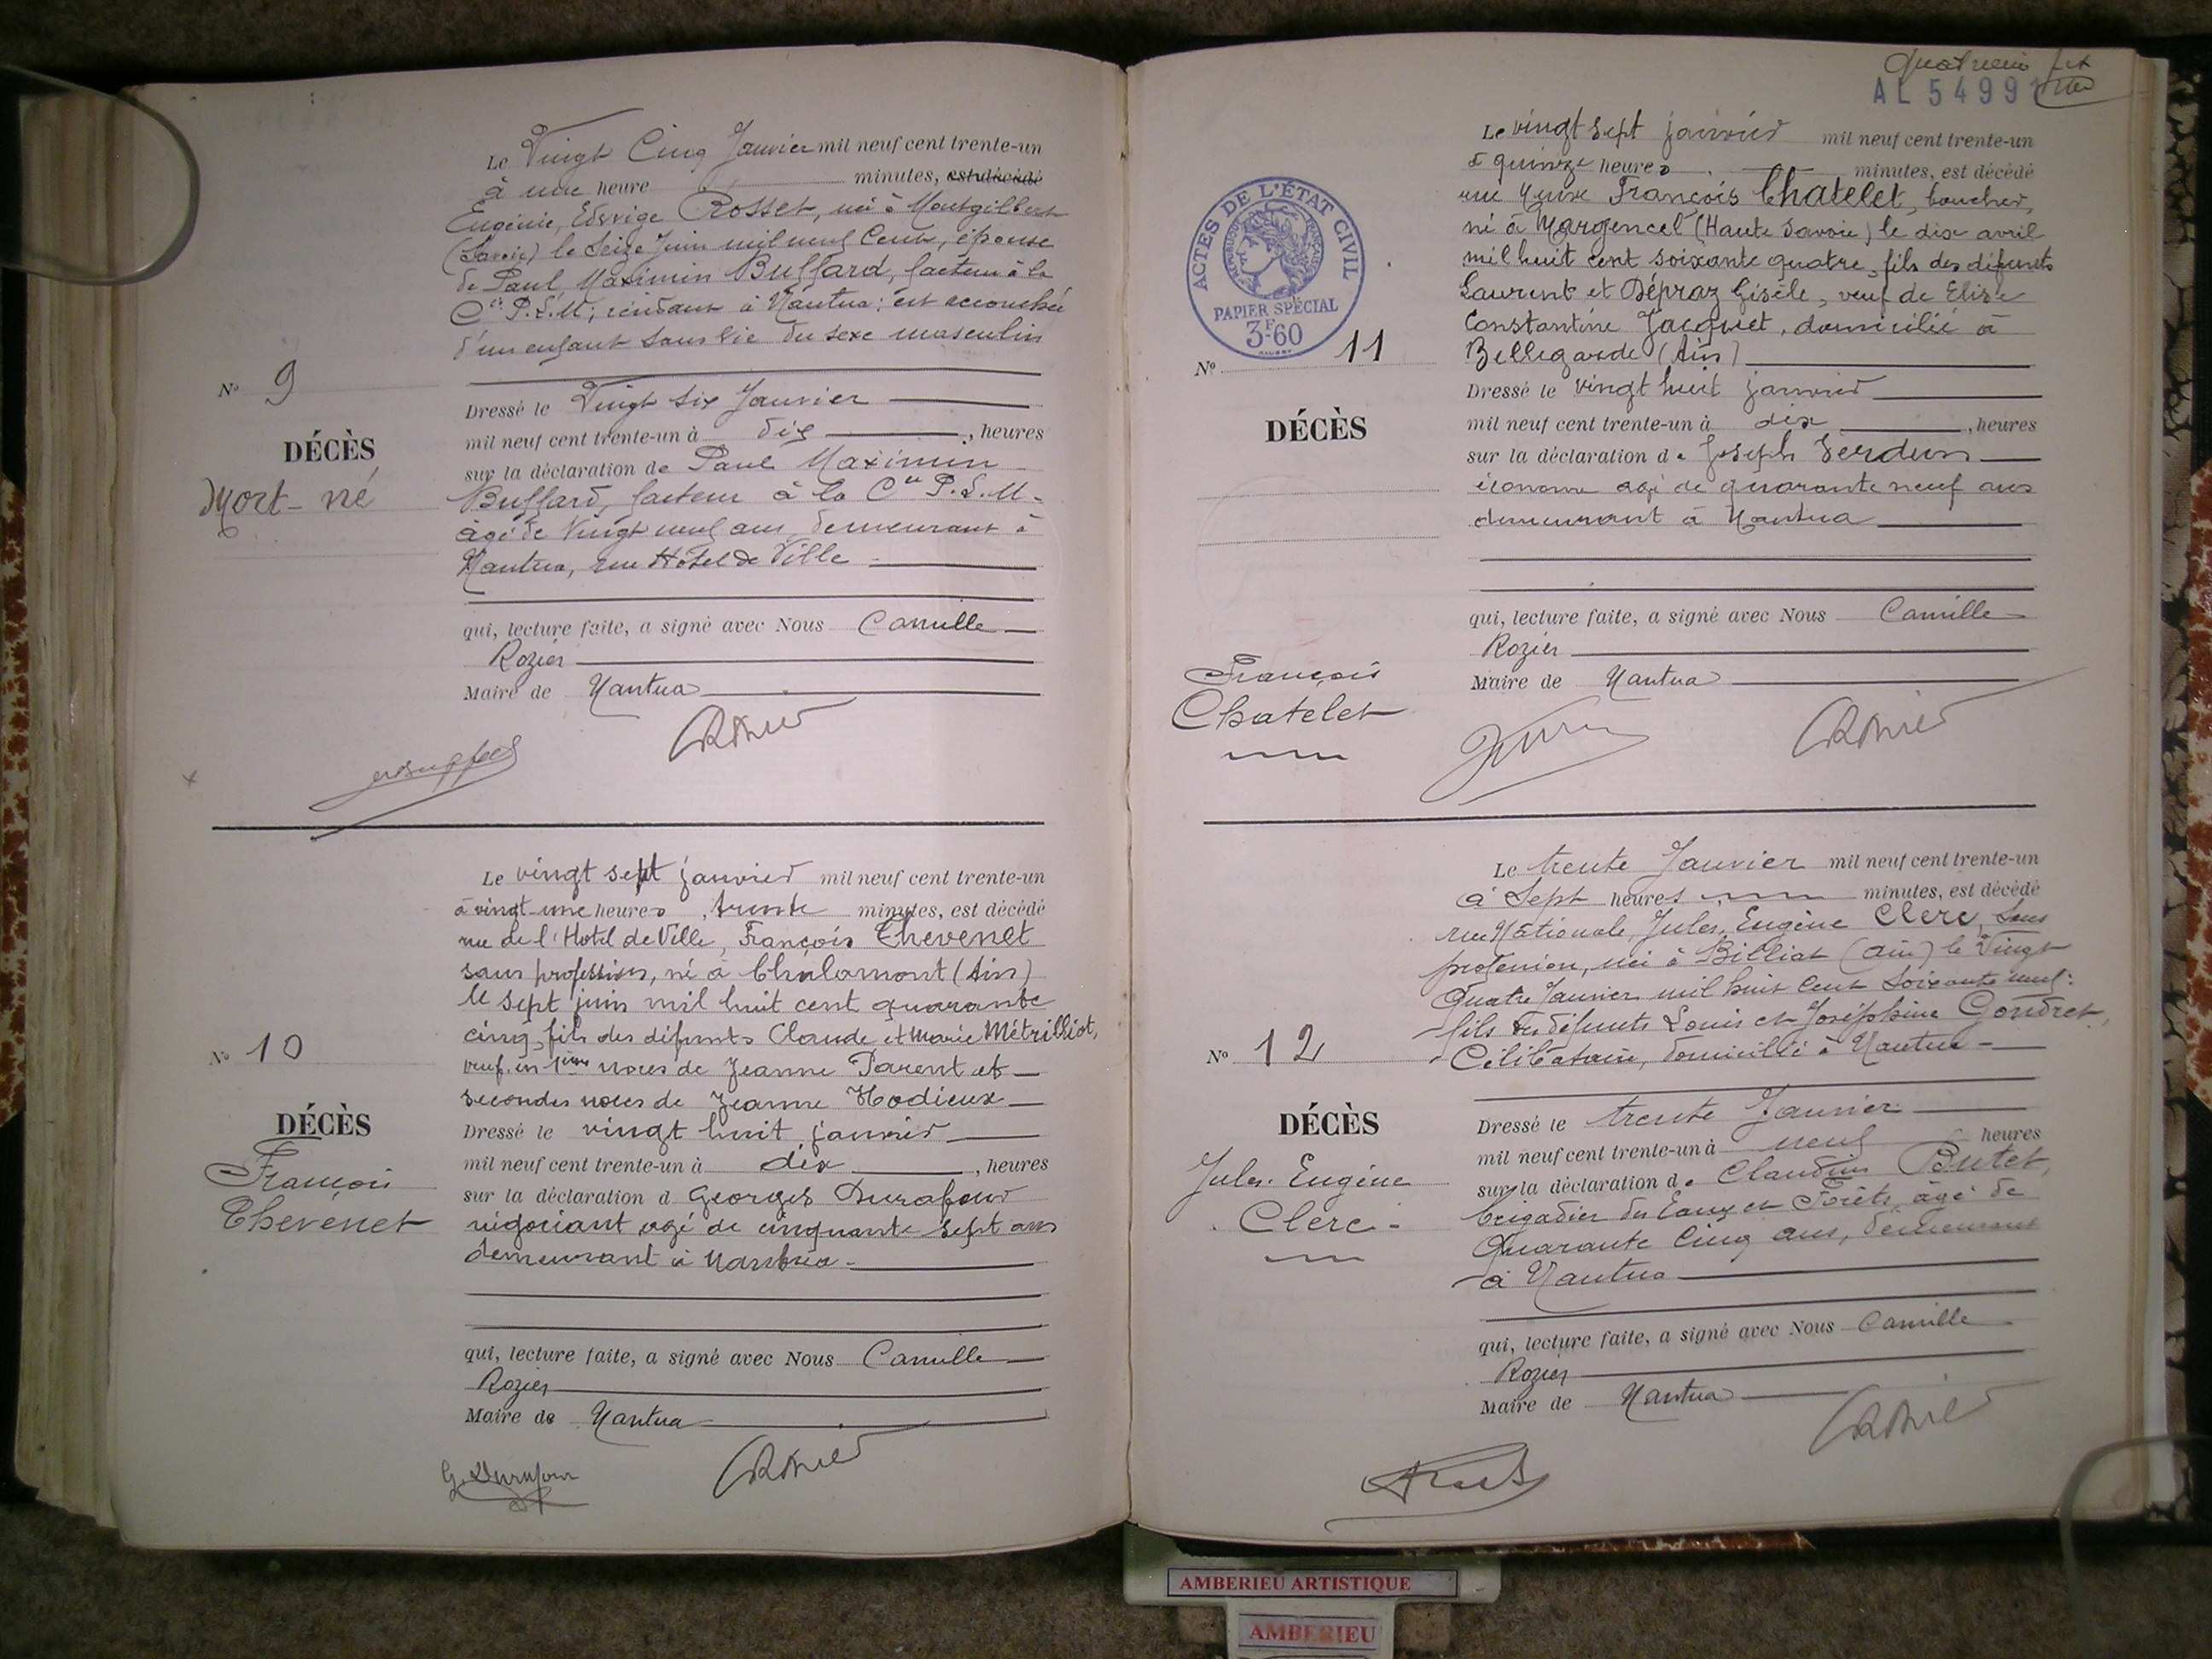 Le Vingt Cinq Janvier mil neuf cent trente-un
à une heure minutes, est décédé
Eugénie, Edwige Rosset, née à Montgilbert
(Savoie) le Seize Juin mil neuf Cent, épouse
de Paul, Maximin Buffard, facteur à la
Cie P.L.M, résidant à Nantua: est accouchée
d'un enfant sans vie du sexe masculin
N° 9
DÉCÈS
Mort-né
Dressé le Vingt six Janvier
mil neuf cent trente-un à dix, heures
sur la déclaration de Paul Maximin
Buffard, facteur à la Cie P.L.M.
âgé de Vingt neuf ans, demeurant à
Nantua, rue Hôtel de Ville
qui, lecture faite, a signé avec Nous Camille
Rozier
Maire de Nantua
Le vingt sept janvier mil neuf cent trente-un
à vingt-une heures, trente minutes, est décédé
rue de l'Hotel de Ville, François Thevenet
sans profession, né à Chalamont (Ain)
le sept juin mil huit cent quarante
cinq, fils des défunts Claude et Marie Métrilliot,
veuf en 1ères noces de Jeanne Parent et
secondes noces de Jeanne Hodieux
N° 10
DÉCÈS
François
Thevenet
Dressé le vingt huit janvier
mil neuf cent trente-un à dix, heures
sur la déclaration d Georges Durafour
négociant agé de cinquante sept ans
demeurant à Nantua
qui, lecture faite, a signé avec Nous Camille
Rozier
Maire de Nantua
G. Durafour
Quatrième
AL 5499
ACTES DE L'ÉTAT CIVIL
PAPIER SPÉCIAL
3F60
Le vingt sept janvier mil neuf cent trente-un
à quinze heures minutes, est décédé
rue François Chatelet, boucher,
né à Margencel (Haute Savoie) le dix avril
mil huit cent soixante quatre, fils des défunts
Laurent et Dépraz Gisèle, veuf de Elise
Constantine Jacquet, domicilié à
Bellegarde (Ain)
N° 11
DÉCÈS
François
Chatelet
Dressé le vingt huit janvier
mil neuf cent trente-un à dix, heures
sur la déclaration de Joseph Verdun
économe agé de quarante neuf ans
demeurant à Nantua
qui, lecture faite, a signé avec Nous Camille
Rozier
Maire de Nantua
Le trente Janvier mil neuf cent trente-un
à Sept heures minutes, est décédé
rue Nationale, Jules, Eugène Clerc, Sans
profession, né à Billiat (Ain) le Vingt
Quatre Janvier mil huit Cent Soixante neuf:
fils des défunts Louis et Joséphine Gondret,
Célibataire, domicilié à Nantua
N° 12
DÉCÈS
Jules. Eugène
Clerc
Dressé le trente Janvier
mil neuf cent trente-un à neuf heures
sur la déclaration de Claudius Butet,
brigadier des Eaux et Forêts, âgé de
Quarante Cinq ans, demeurant
à Nantua
qui, lecture faite, a signé avec Nous Camille
Rozier
Maire de Nantua
AMBERIEU ARTISTIQUE
AMBERIEU